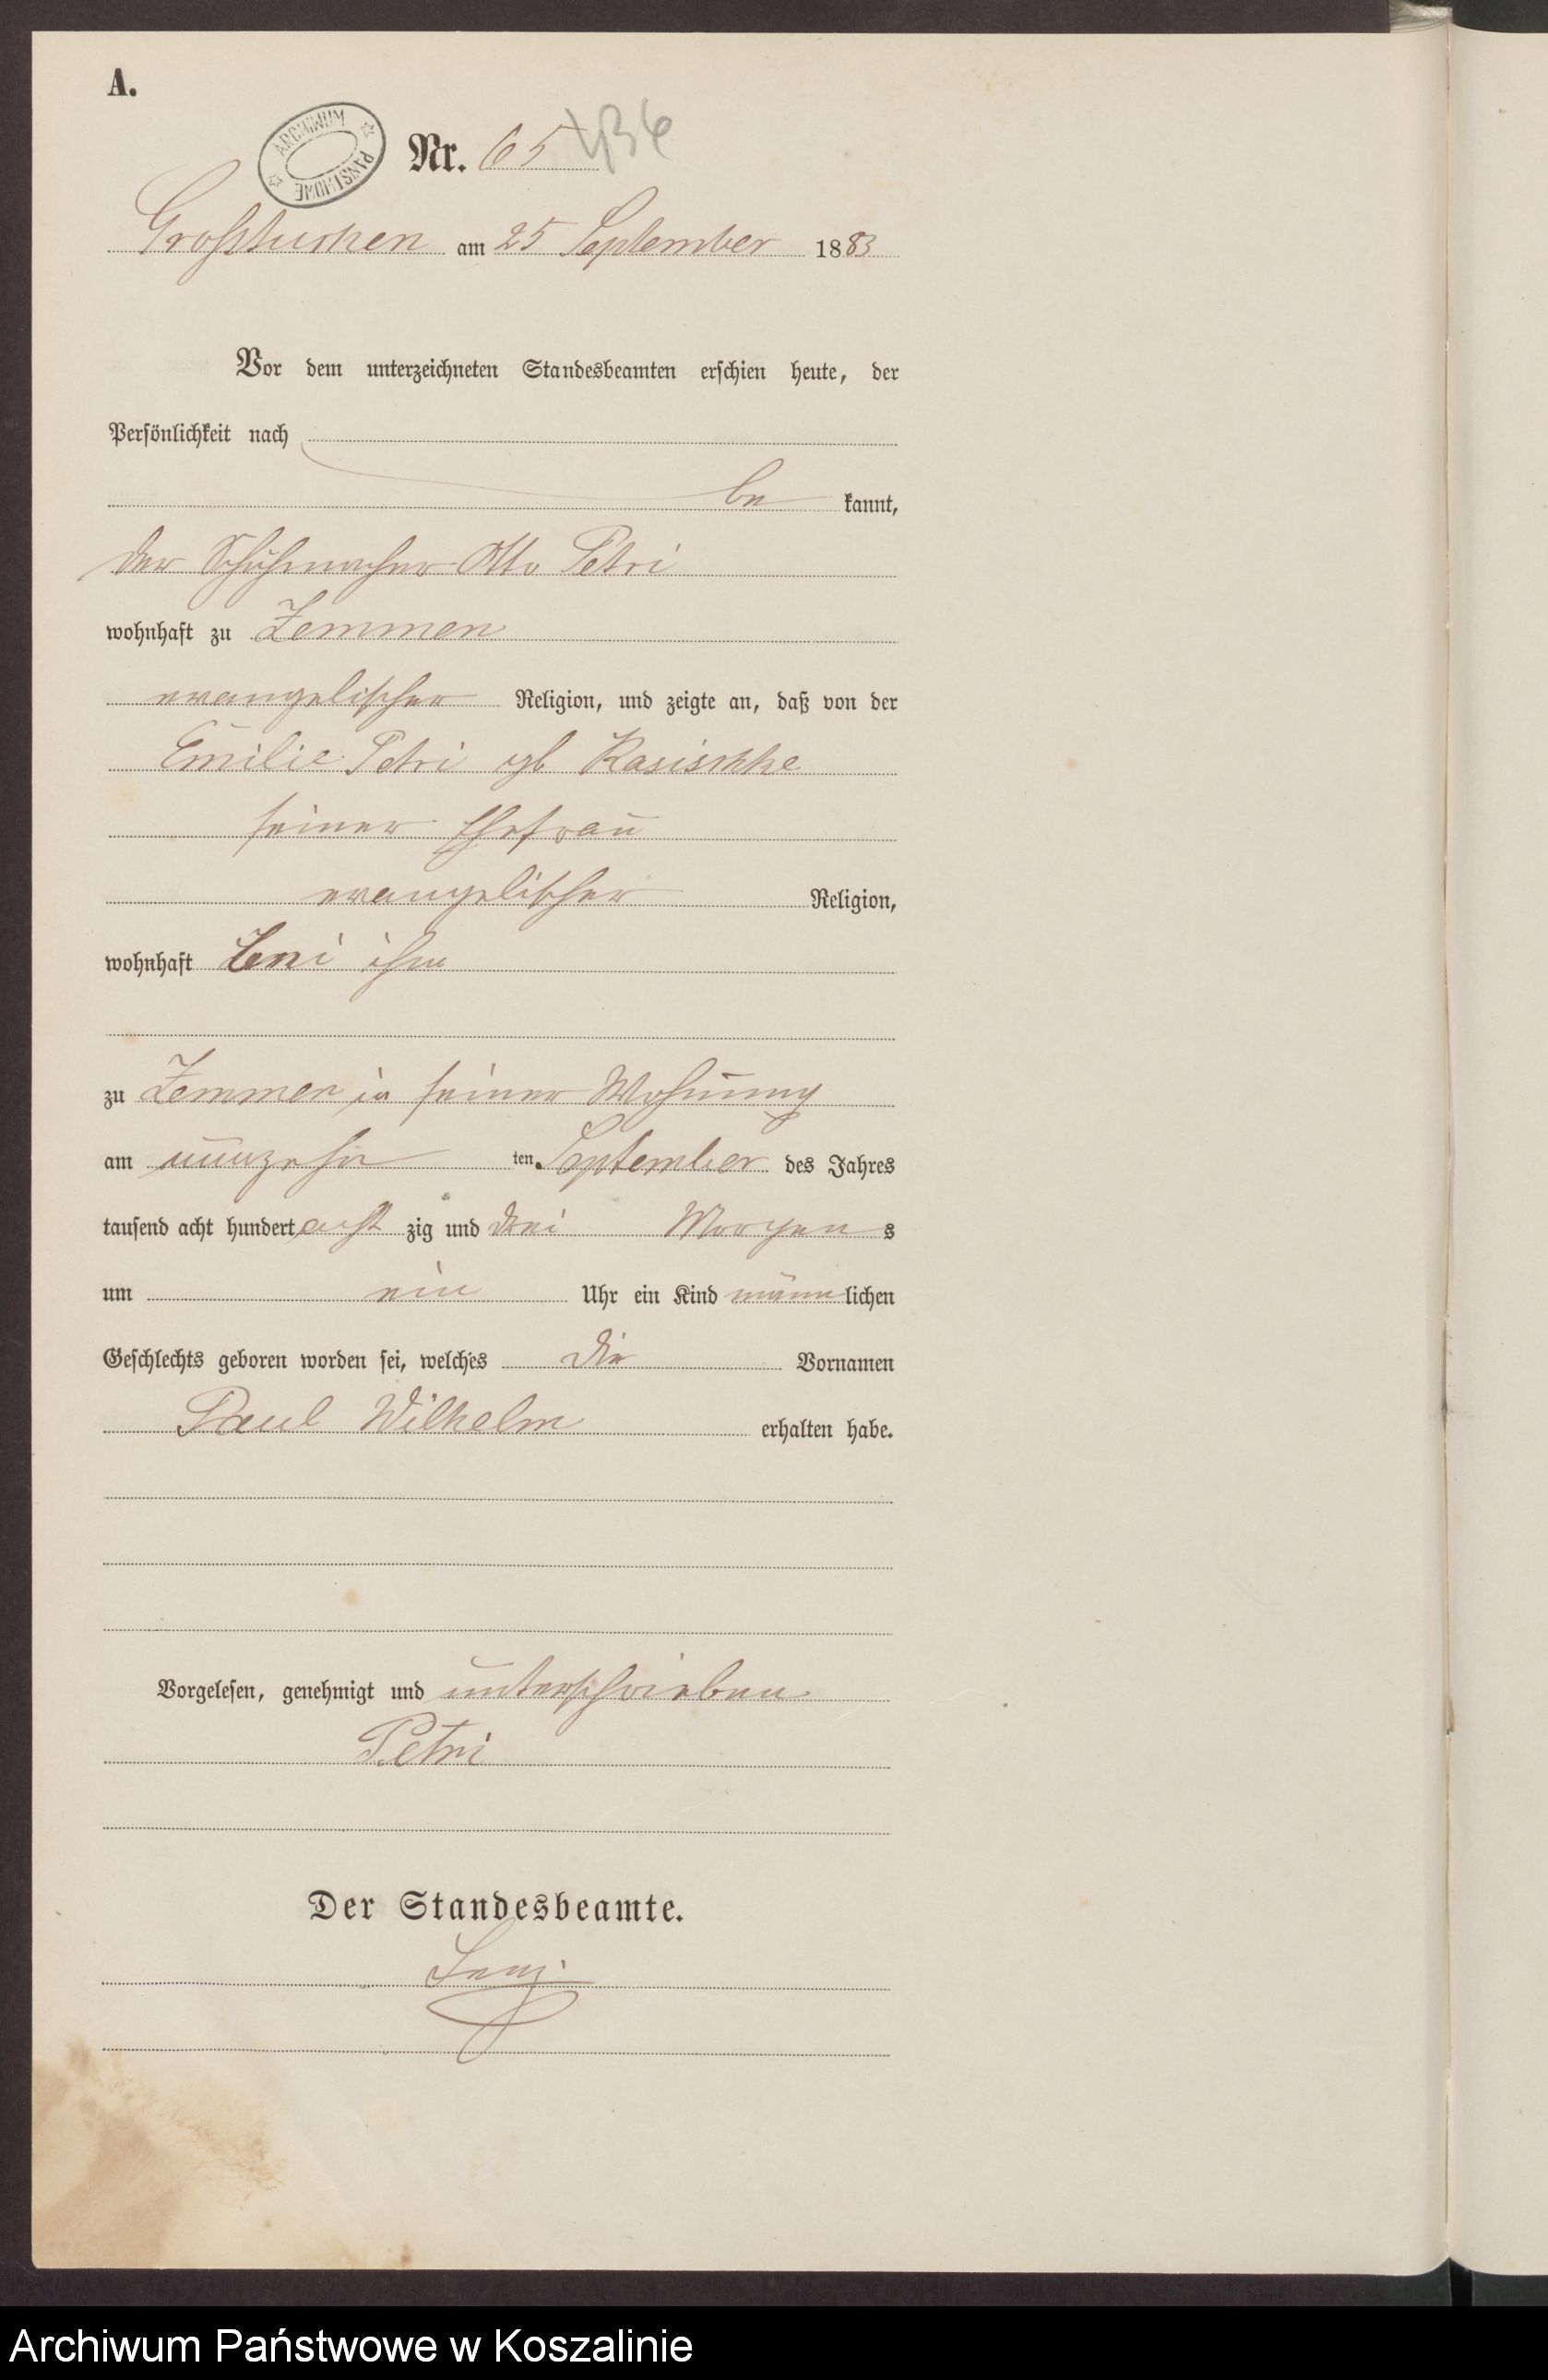 A.
ARCHIWUM PAŃSTWOWE
Nr. 65 436
Großtuchen am 25 September 1883
Vor dem unterzeichneten Standesbeamten erschien heute, der
Persönlichkeit nach
be kannt,
der Schuhmacher Otto Petri
wohnhaft zu Zemmen
evangelischer Religion, und zeigte an, daß von der
Emilie Petri gb Kasischke
seiner Ehefrau
evangelischer Religion,
wohnhaft bei ihm
zu Zemmen in seiner Wohnung
am neunzehn ten September des Jahres
tausend acht hundert acht zig und drei Morgens
um ein Uhr ein Kind männlichen
Geschlechts geboren worden sei, welches die Vornamen
Paul Wilhelm erhalten habe.
Vorgelesen, genehmigt und unterschrieben
Petri
Der Standesbeamte.
Archiwum Państwowe w Koszalinie